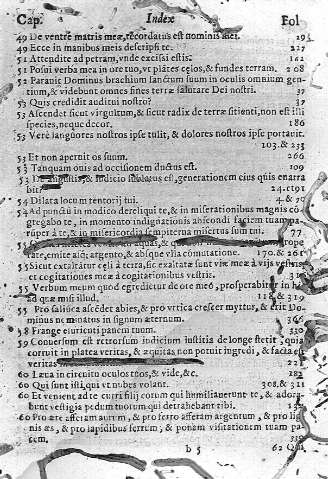 Cap. Index Fol
49 De ventre matris meæ, recordatus est nominis mei. 295
49 Ecce in manibus meis descripsi te. 227
51 Attendite ad petram, vnde excisi estis. 142
51 Posui verba mea in ore tuo, vt plātes cęlos, & fundes terram. 208
52 Parauit Dominus brachium sanctum suum in oculis omnium gen
tium, & videbunt omnes fines terræ salutare Dei nostri. 37
53 Quis credidit auditui nostro? 37
53 Ascendet sicut virgultum, & sicut radix de terra sitienti, non est illi
species, neque decor. 186
53 Verè languores nostros ipse tulit, & dolores nostros ipse portauit.
103. & 235
53 Et non aperuit os suum. 266
53 Tanquam ouis ad occisionem ductus est. 109
53 De angustia, & iudicio sublatus est, generationem eius quis enarra
bit?
54 Dilata locum tentorij tui. 4. & 70
54 Ad punctū in modico dereliqui te, & in miserationibus magnis cō
gregabo te, in momento indignationis abscondi faciem
à te, & in misericordia sempiterna misertus sum tui. 77
55 aquas, &
rate, emite absq; argento, & absque vlla cōmutatione. 170. & 261
55 Sicut exaltātur cęli à terra, sic exaltatæ sunt viæ meæ à vijs vestris,
et cogitationes meæ à cogitationibus vestris. 317
55 Verbum meum quod egredietur de ore meo, prosperabitur in his
ad quæ misi illud. 118. & 319
55 Pro saliunca ascedet abies, & pro vrtica crescet myrtus, & erit Do-
minus nominatus in signum æternum. 366
58 Frange esurienti panem tuum. 330
59 Conuersum est retrorsum iudicium iustitia de longe stetit, quia
corruit in platea veritas, & æquitas non potuit ingredi, & facta est
veritas
60 Leua in circuito oculos tuos, & vide, &c. 182
60 Qui sunt isti, qui vt nubes volant. 308. & 321
60 Et venient ad te curui filij eorum qui humiliauerunt te, & adora-
bunt vestigia pedum tuorum qui detrahebant tibi.
60 Pro ære afferam aurum, & pro ferro afferam argentum, & pro lig
nis æs, & pro lapidibus ferrum, & ponam visitationem tuam pa
cem.
b 5